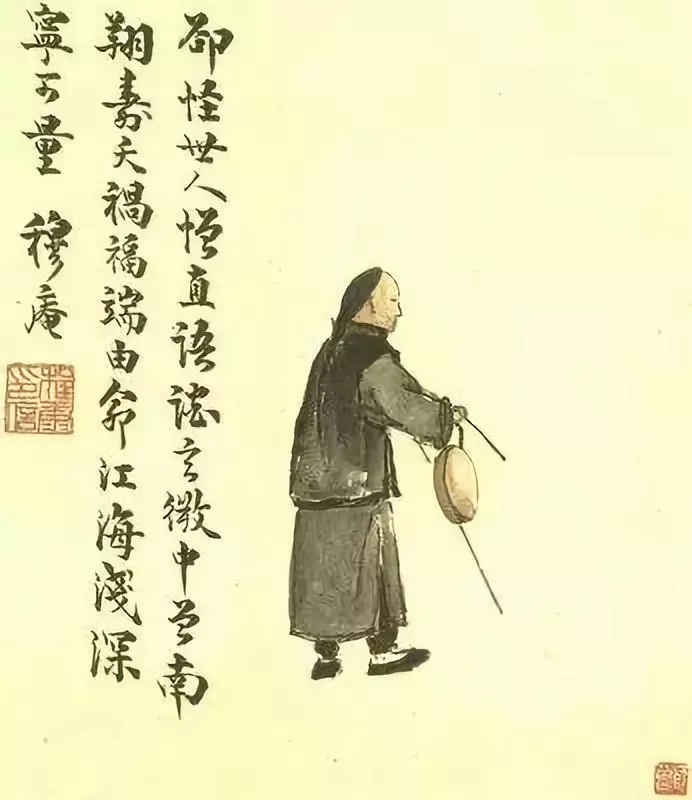 卻怪世人憎直語言微中南
翔壽夭禍福端由江海淺深
寧可量 穆庵
程康印信